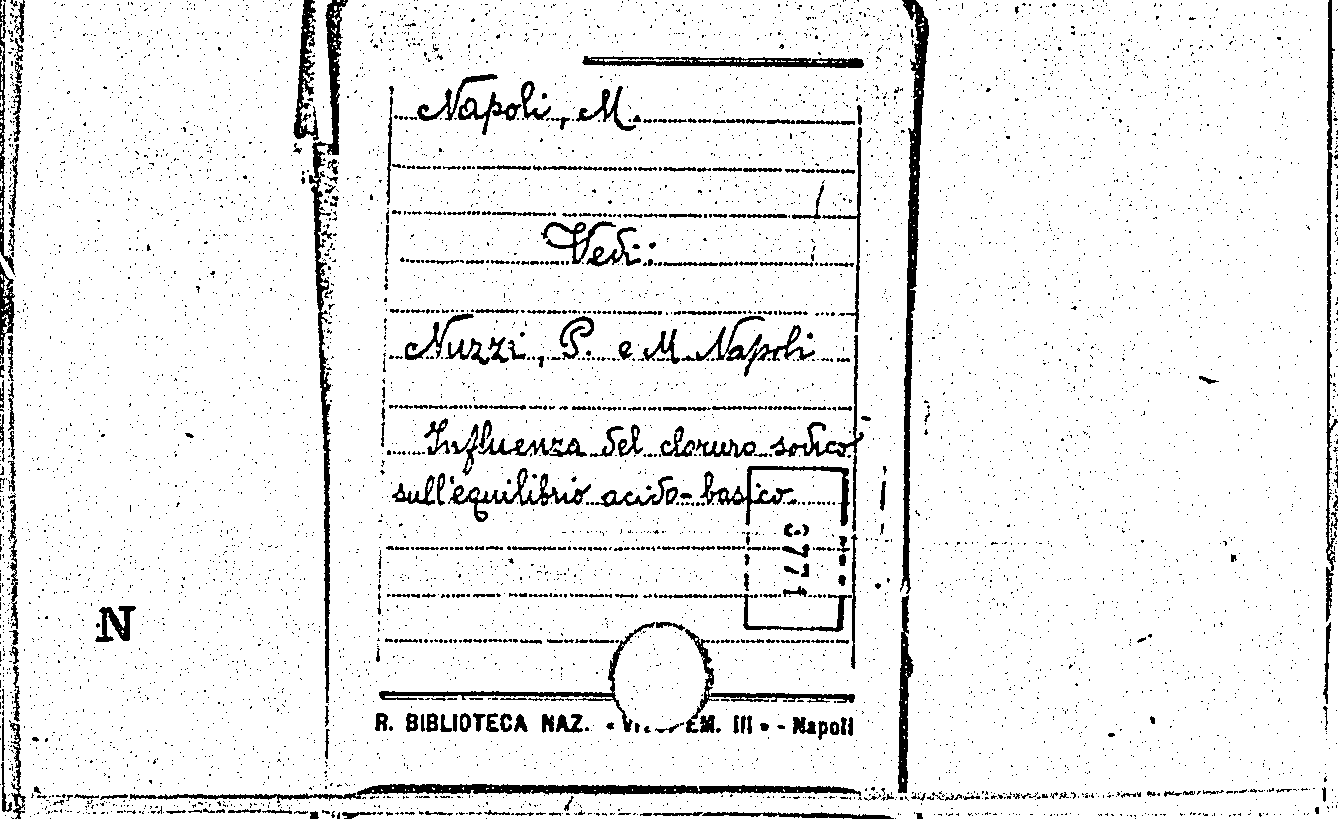 Napoli, M.
Vedi:
Nuzzi, P. e M. Napoli
Influenza del cloruro sodico
sull'equilibrio acido-basico.
3771
N
R. BIBLIOTECA NAZ. « EM. III » - Napoli